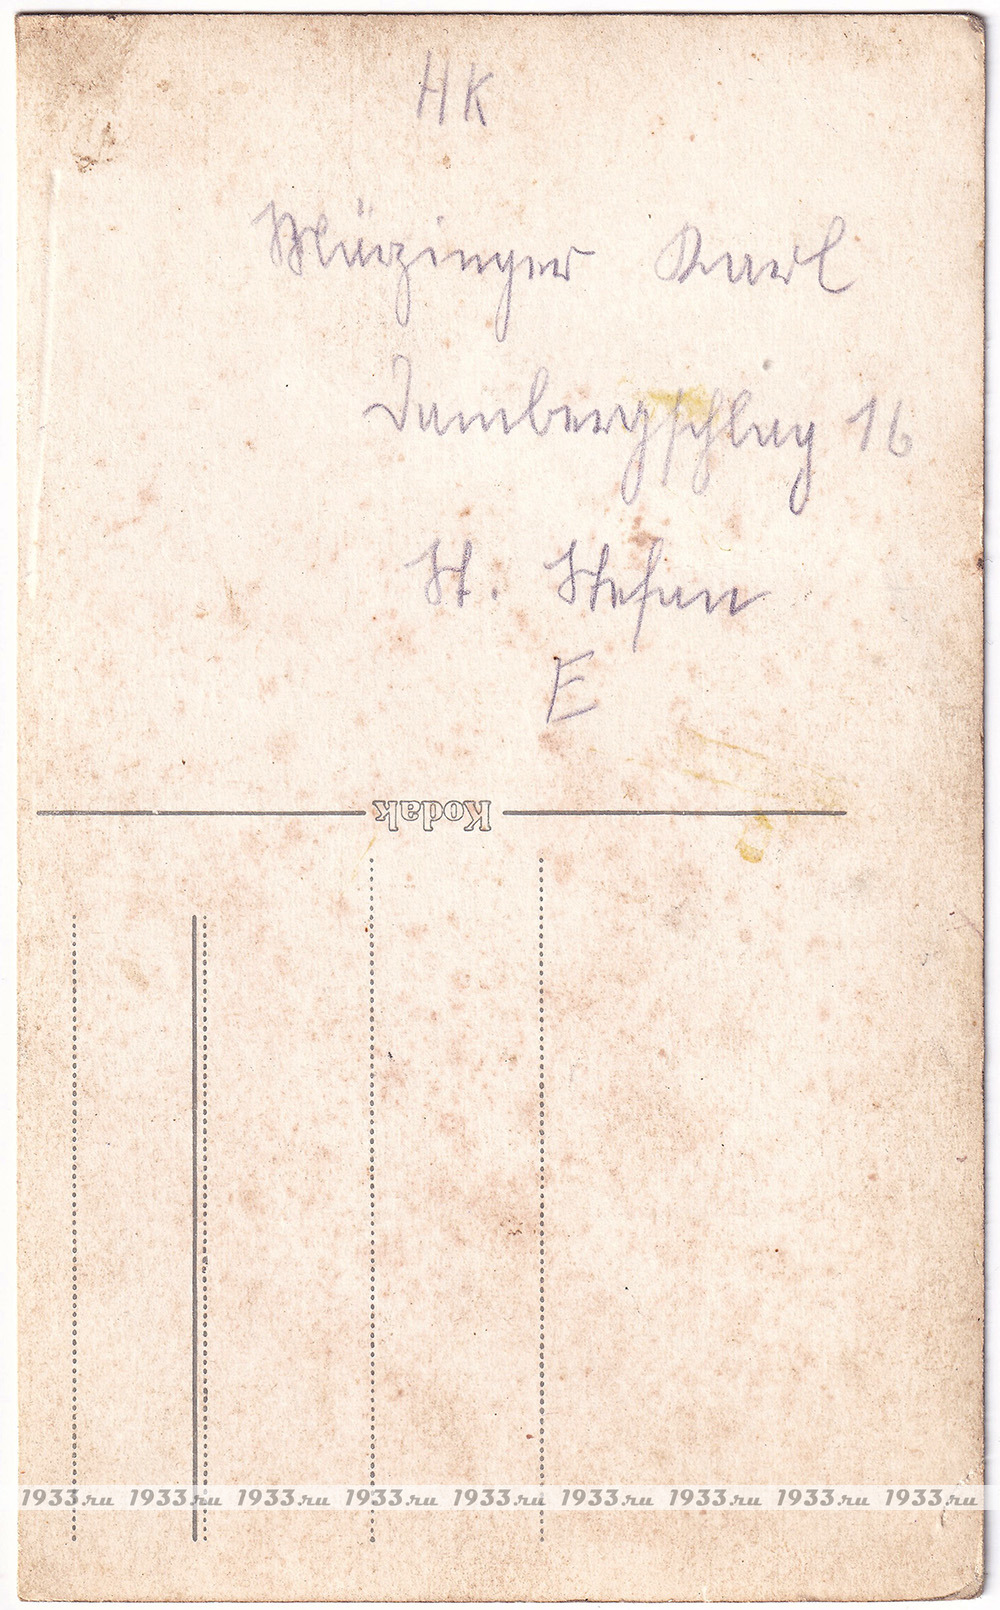 HK
Märzinger Karl
Dambergschlag 16
St. Stefan
E
Kodak
1933.ru 1933.ru 1933.ru 1933.ru 1933.ru 1933.ru 1933.ru 1933.ru 1933.ru